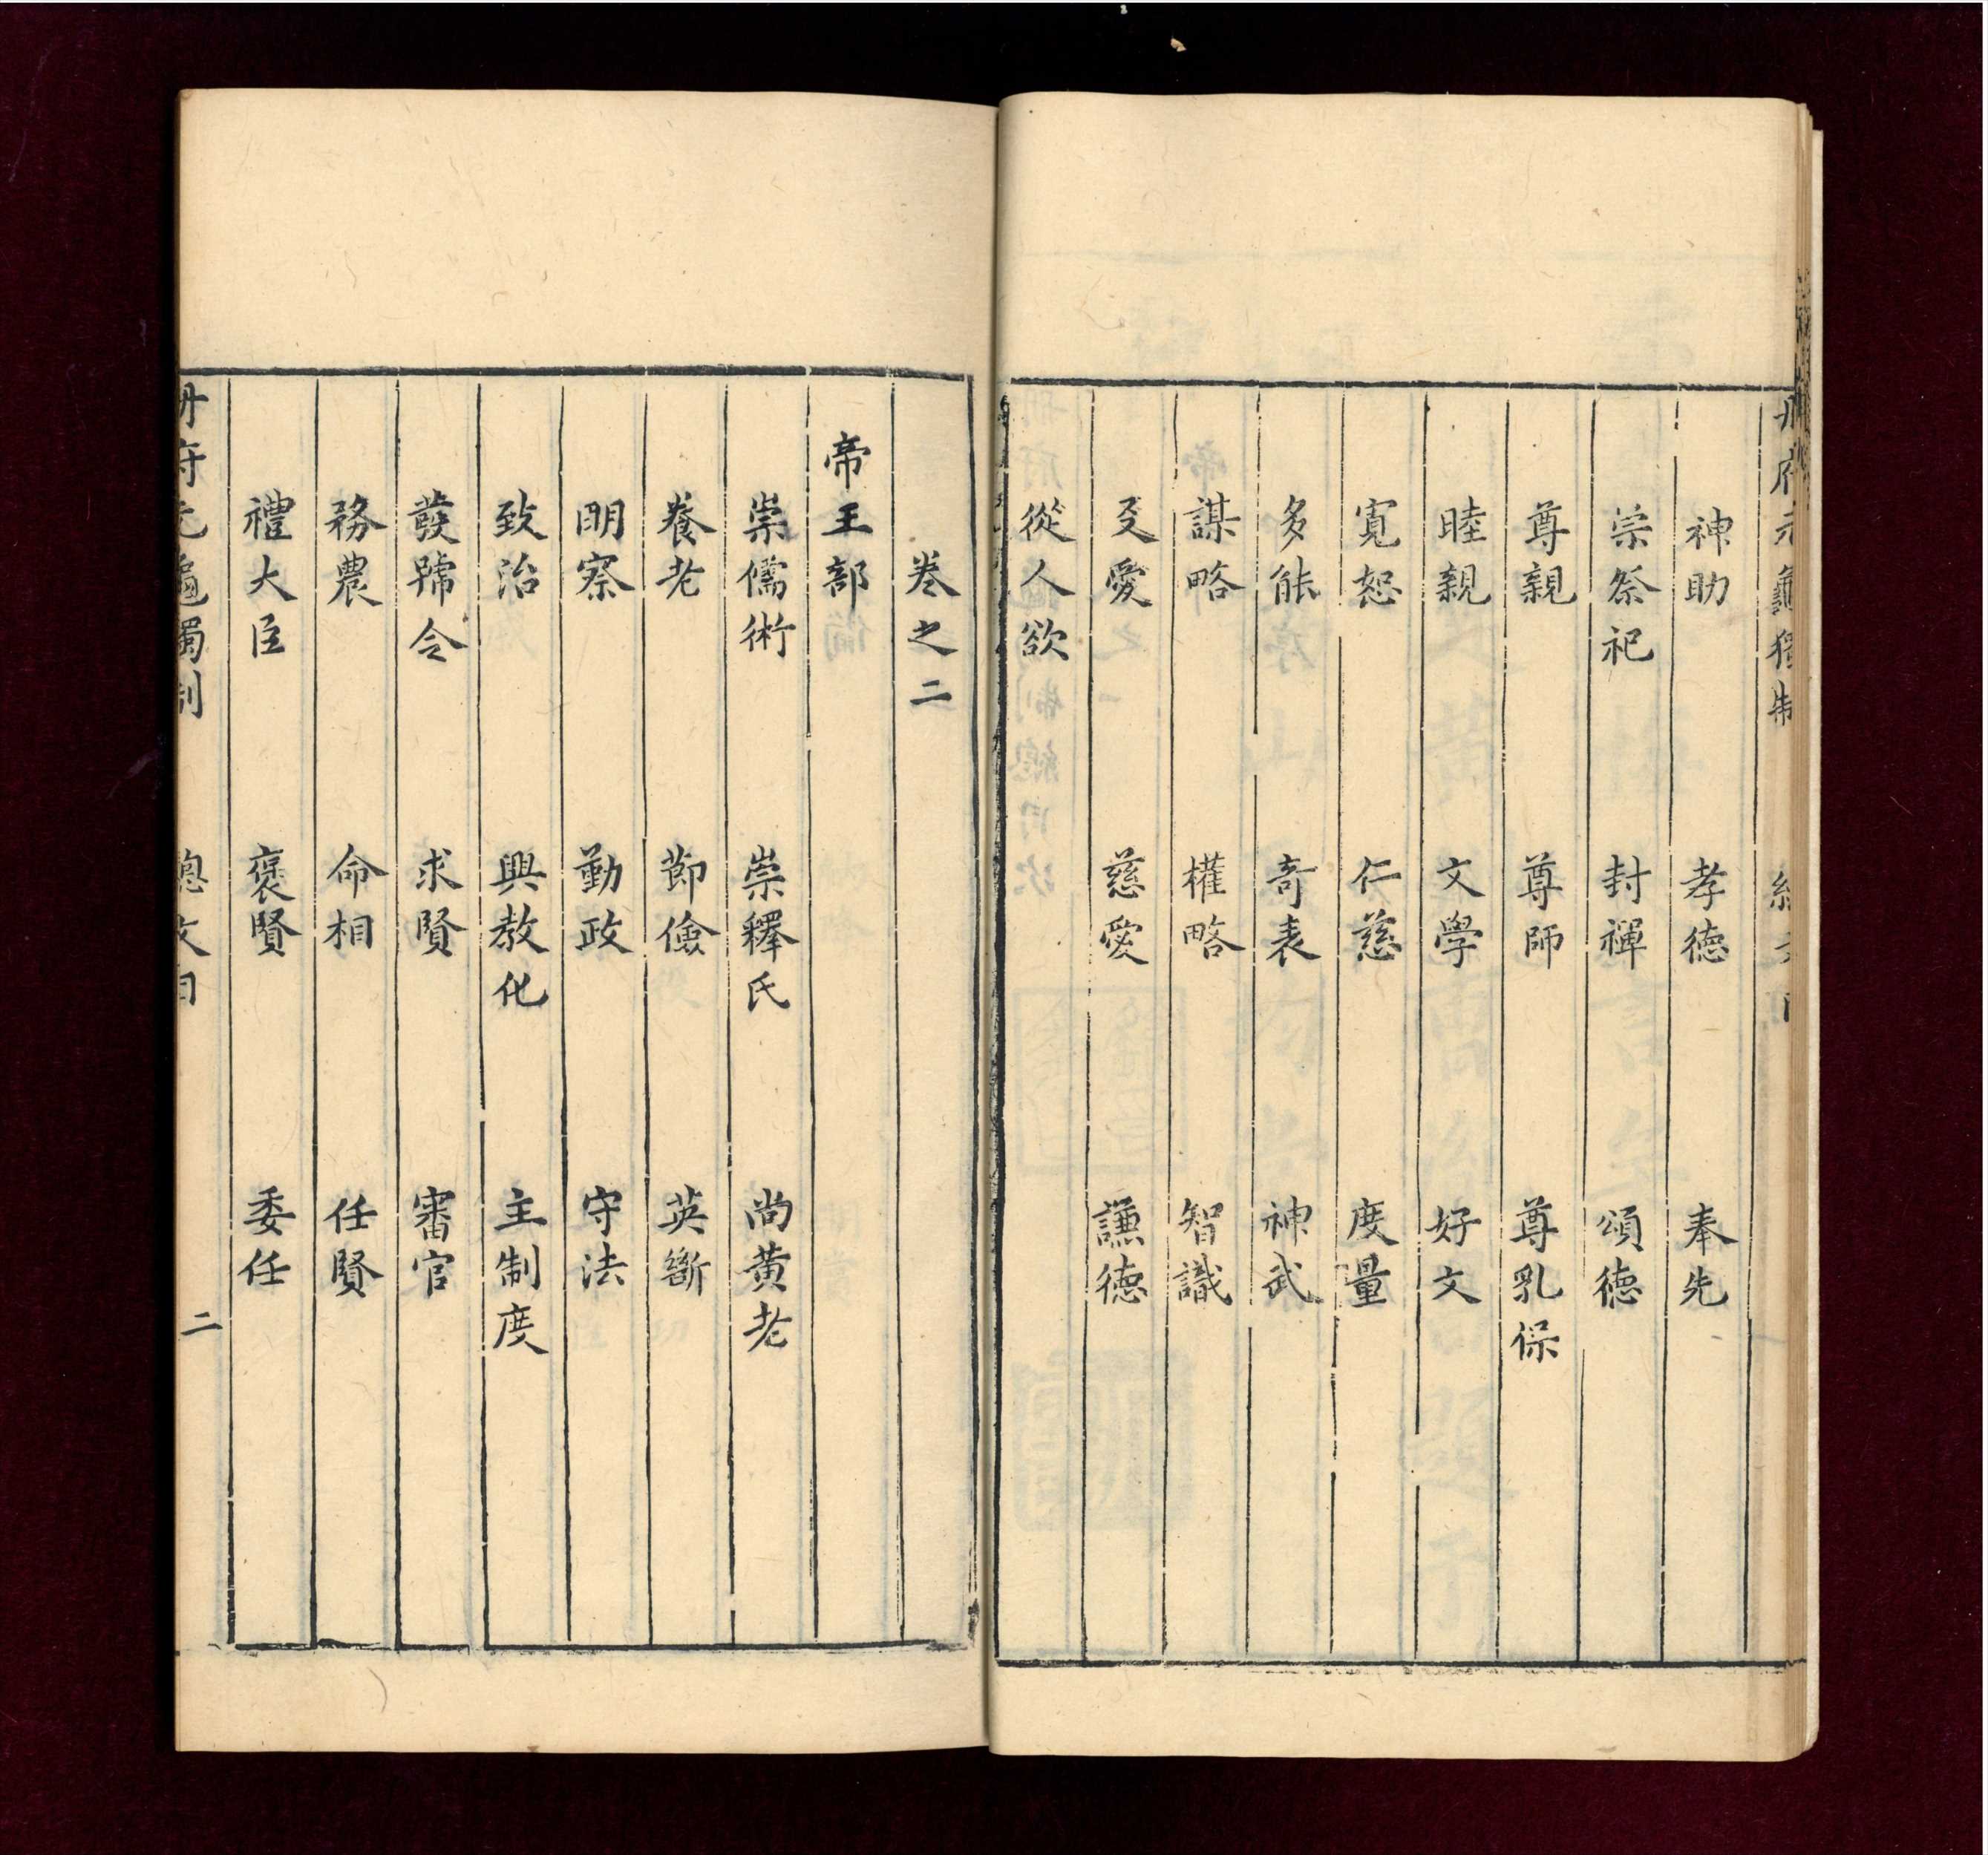 神助 孝德 奉先
崇祭祀 封禪 頌德
尊親 尊師 尊乳保
睦親 文學 好文
寬恕 仁慈 度量
多能 奇表 神武
謀略 權略 智識
友愛 慈愛 謙德
從人欲
卷之二
帝王部
崇儒術 崇釋氏 尚黃老
養老 節儉 英斷
明察 勤政 守法
致治 興教化 主制度
發號令 求賢 審官
務農 命相 任賢
禮大臣 褒賢 委任
冊府元龜獨制 總文目 二